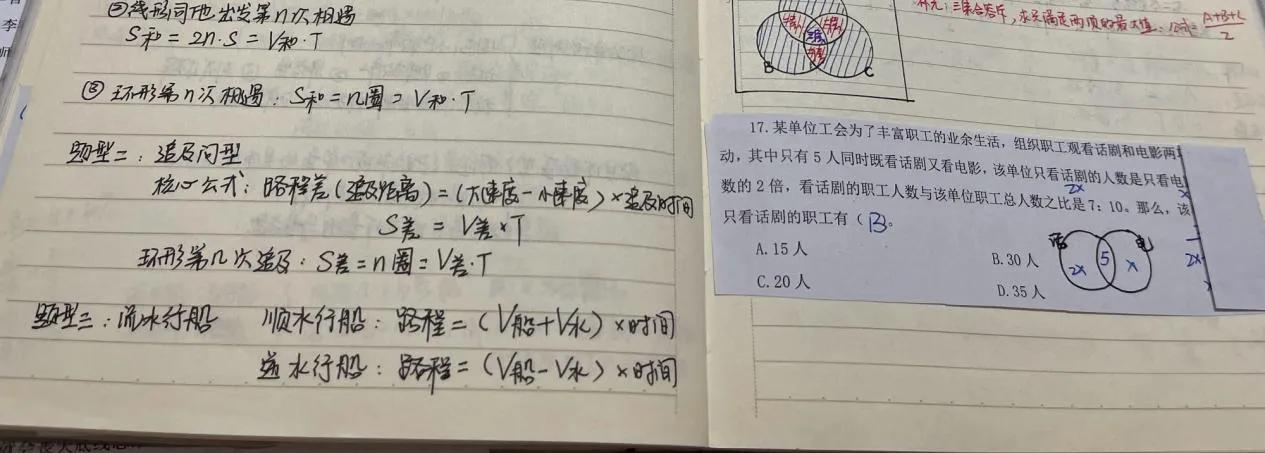 ②线形同地出发第n次相遇
S和=2n·S=V和·T
③环形第n次相遇:S和=n圈=V和·T
题型二:追及问型
核心公式:路程差(追及距离)=(大速度-小速度)×追及时间
S差=V差×T
环形第n次追及:S差=n圈=V差·T
题型三:流水行船 顺水行船:路程=(V船+V水)×时间
逆水行船:路程=(V船-V水)×时间
李
师
B
C
满足两项的最大值
A+B+C
2
17.某单位工会为了丰富职工的业余生活,组织职工观看话剧和电影两
动,其中只有5人同时既看话剧又看电影,该单位只看话剧的人数是只看电
2x
数的2倍,看话剧的职工人数与该单位职工总人数之比是7:10。那么,该
只看话剧的职工有(B。
A.15人
B.30人
C.20人
D.35人
话 电
2x 5 x